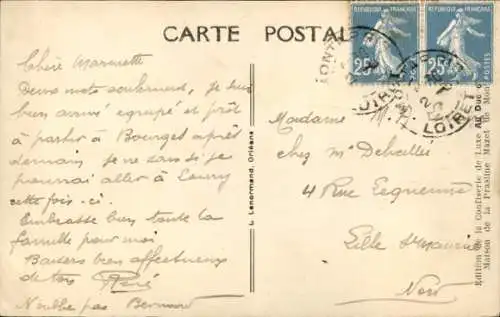 CARTE POSTALE
REPUBLIQUE FRANÇAISE
25c
REPUBLIQUE FRANÇAISE
25c
MONTARGIS
LOIRET
LOIRET
Chère Marinette
Deux mots seulement, je suis
bien arrivé équipé et prêt
à partir à Bourges après
demain je ne sais si je
pourrai aller à
cette fois-ci.
Embrasse bien toute la
famille pour moi
Baisers bien affectueux
de tous René
N'oublie pas Bernard
L. Lenormand, Orléans
Madame
chez Mr
4 Rue
Lille St Maurice
Nord
Edition de la Confiserie de Luxe AU Duc
Maison de la Prasline Mazet de Mont